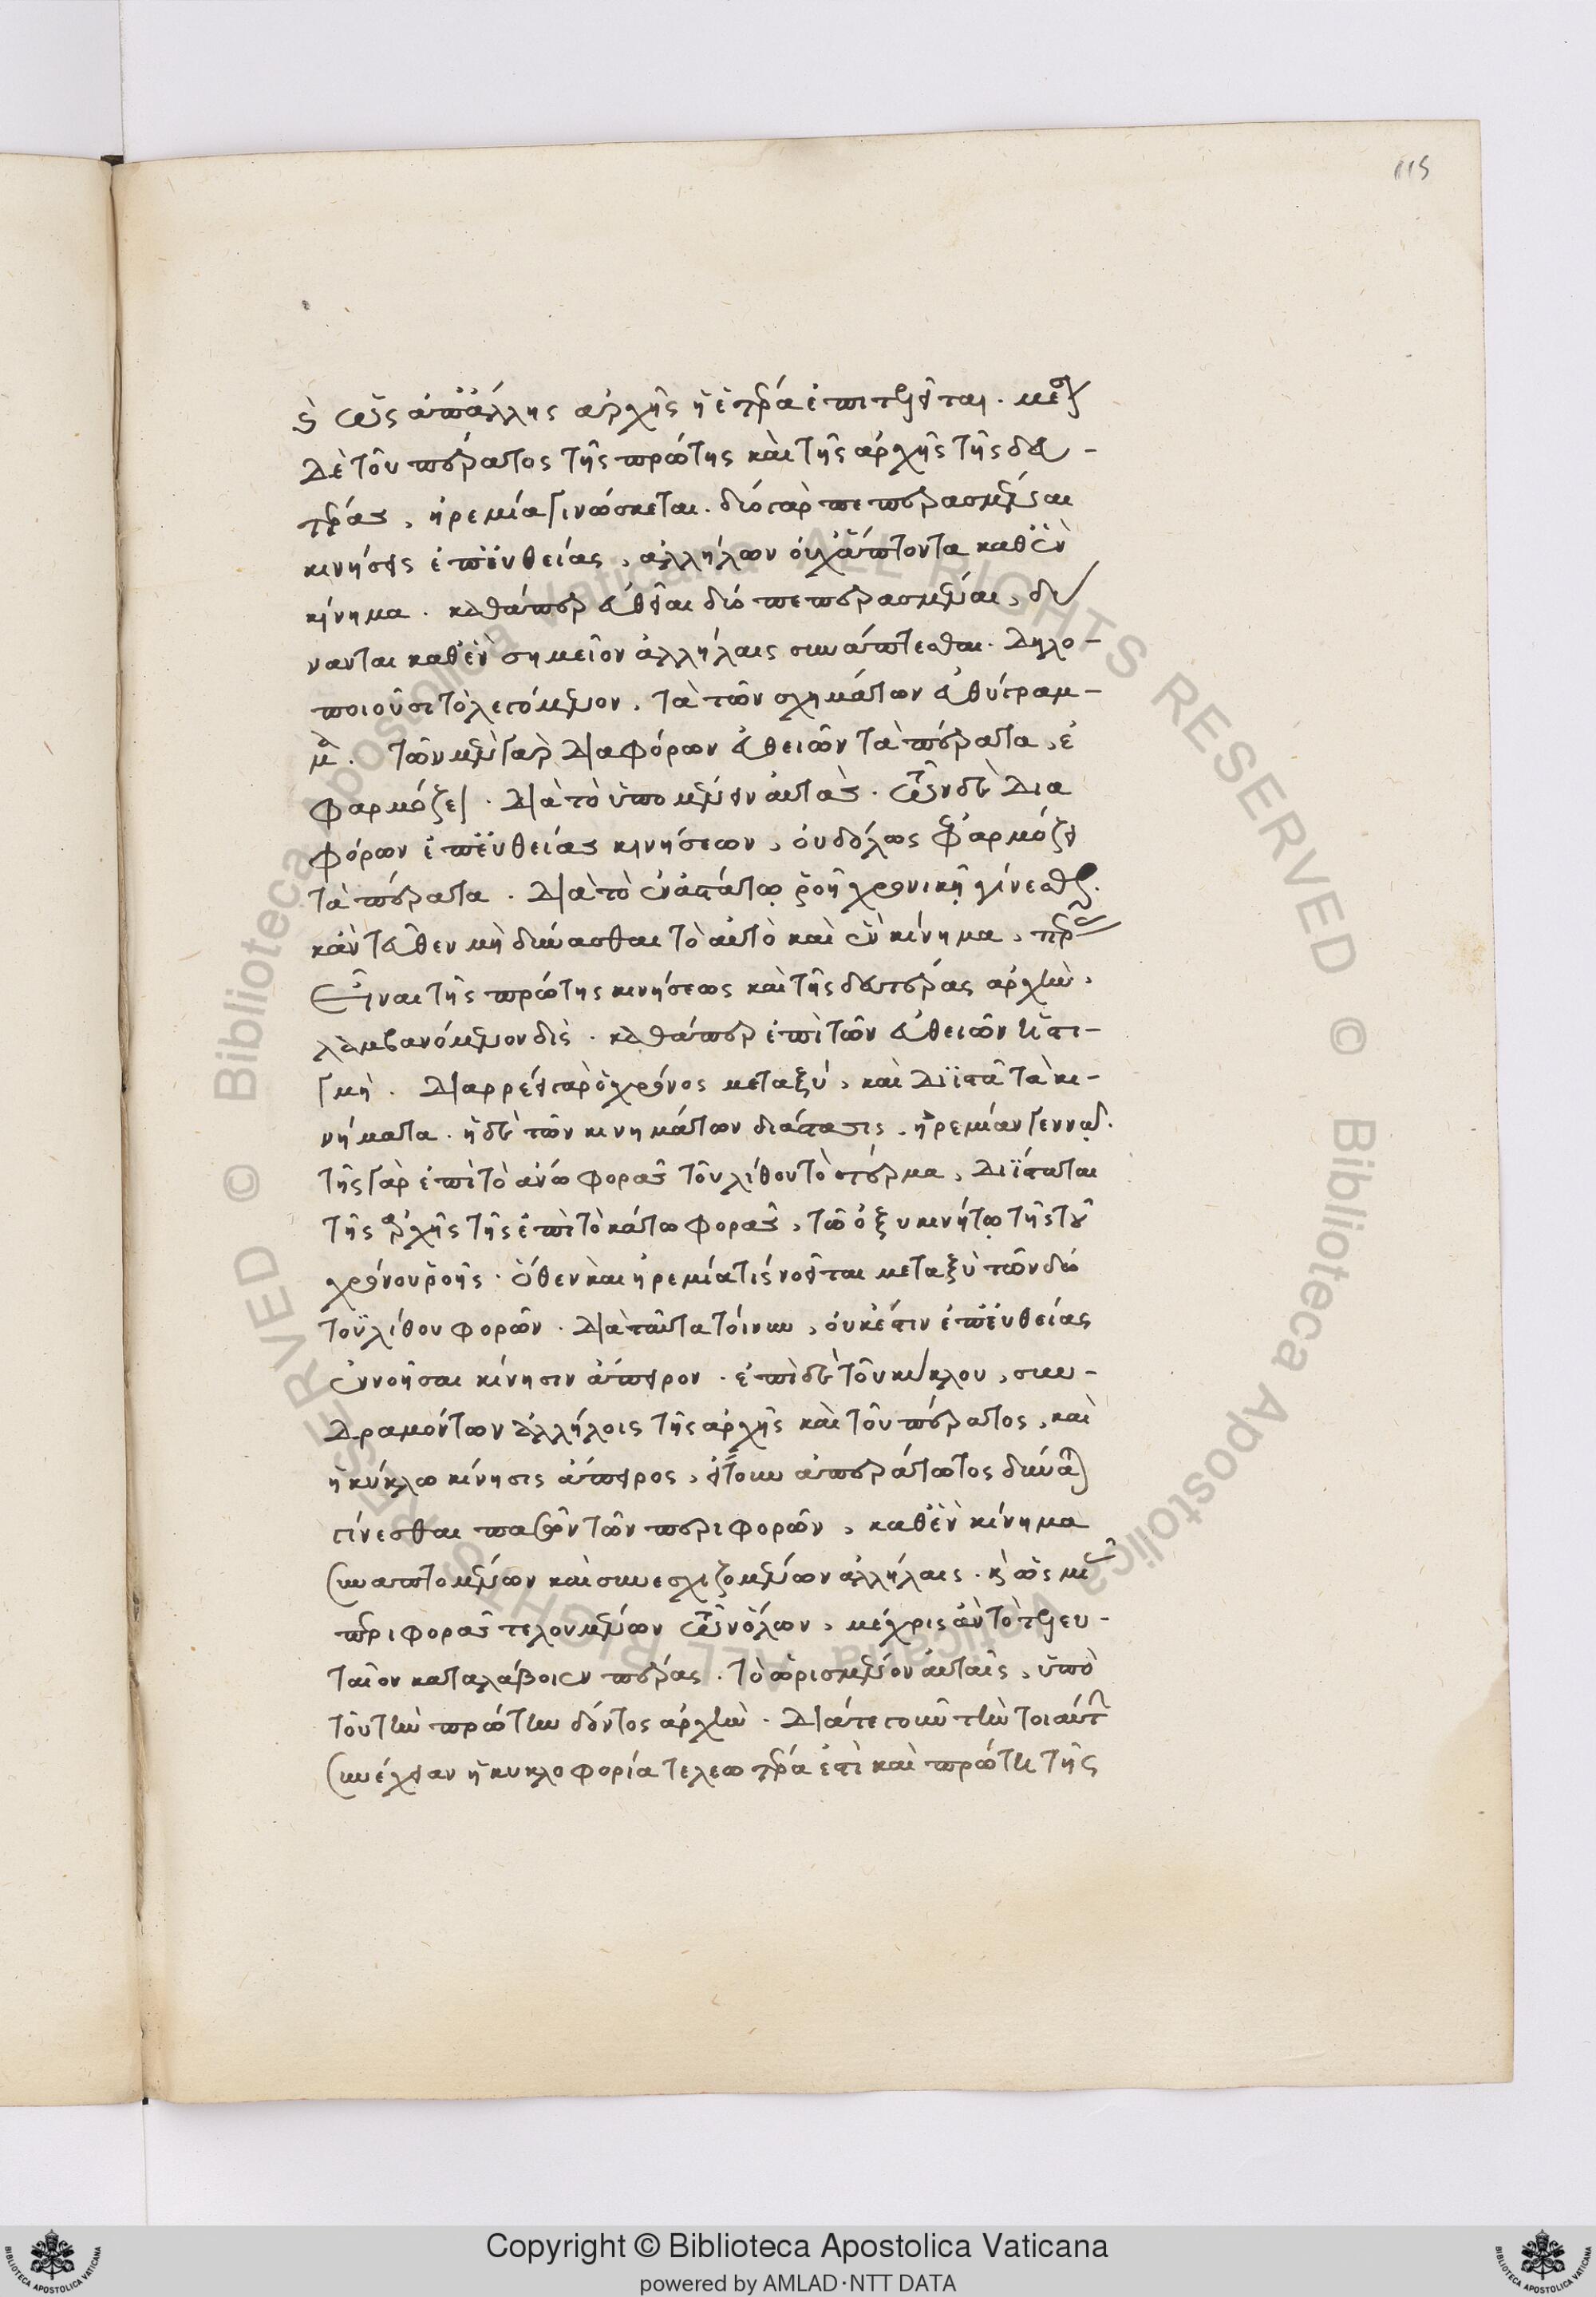 115
καὶ ὡς ἀπ' ἄλλης ἀρχῆς ἡ ἑτέρα ἐπιτελεῖται. μεταξὺ
δὲ τοῦ πέρατος τῆς πρώτης καὶ τῆς ἀρχῆς τῆς δευ-
τέρας, ἠρεμία γινώσκεται. δύο γὰρ πεπερασμέναι
κινήσεις ἐπ' εὐθείας, ἀλλήλων οὐχ ἅπτονται καθ' ἓν
κίνημα. καθάπερ εὐθεῖαι δύο πεπερασμέναι, δύ
νανται καθ' ἓν σημεῖον ἀλλήλαις συνάπτεσθαι. δηλο-
ποιοῦσι τὸ λεγόμενον, τὰ τῶν σχημάτων εὐθύγραμ-
μα. τῶν μὲν γὰρ διαφόρων εὐθειῶν τὰ πέρατα, ἐ
φαρμόζει. διὰ τὸ ὑπομένειν αὐτάς. τῶν δὲ δια
φόρων ἐπ' εὐθείας κινήσεων, οὐδόλως ἐφαρμόζει
τὰ πέρατα. διὰ τὸ ἐν ἀστάτῳ ῥοῇ χρονικῇ γίνεσθαι.
κἀντεῦθεν μὴ δύνασθαι τὸ αὐτὸ καὶ ἓν κίνημα, πέρας
εἶναι τῆς πρώτης κινήσεως καὶ τῆς δευτέρας ἀρχὴν,
λαμβανόμενον δὶς. καθάπερ ἐπὶ τῶν εὐθειῶν ἡ στι-
γμὴ. διαρρεῖ γὰρ ὁ χρόνος μεταξύ, καὶ διϊστᾶ τὰ κι-
νήματα. ἡ δὲ τῶν κινημάτων διάστασις, ἠρεμίαν γεννᾷ.
τῆς γὰρ ἐπὶ τὸ ἄνω φορᾶς τοῦ λίθου τὸ πέρμα, διΐσταται
τῆς ἀρχῆς τῆς ἐπὶ τὸ κάτω φορᾶς, τῶ ὀξυκινήτῳ τῆς τοῦ
χρόνου ῥοῆς. ὅθεν καὶ ἠρεμία τις νοεῖται μεταξὺ τῶν δύο
τοῦ λίθου φορῶν. διὰ ταῦτα τοίνυν, οὐκ ἔστιν ἐπ' εὐθείας
ἐννοῆσαι κίνησιν ἄπειρον. ἐπὶ δὲ τοῦ κύκλου, συν-
δραμόντων ἀλλήλοις τῆς ἀρχῆς καὶ τοῦ πέρατος, καὶ
ἡ κύκλω κίνησις ἄπειρος, εἴτουν ἀπεράτωτος δύναται
γίνεσθαι πασῶν τῶν περιφορῶν, καθ' ἓν κίνημα
συναπτομένων καὶ συνεχιζομένων ἀλλήλαις. καὶ ὡς μιᾶς
περιφορᾶς τελουμένων τῶν ὅλων, μέχρις ἂν τὸ τελευ-
ταῖον καταλάβοιεν πέρας. τὸ ὡρισμένον αὐταῖς, ὑπὸ
τοῦ τὴν πρώτην δόντος ἀρχὴν. διά τε γοῦν τὴν τοιαύτην
συνέχειαν ἡ κυκλοφορία τελεωτέρα ἐστὶ καὶ πρώτη τῆς